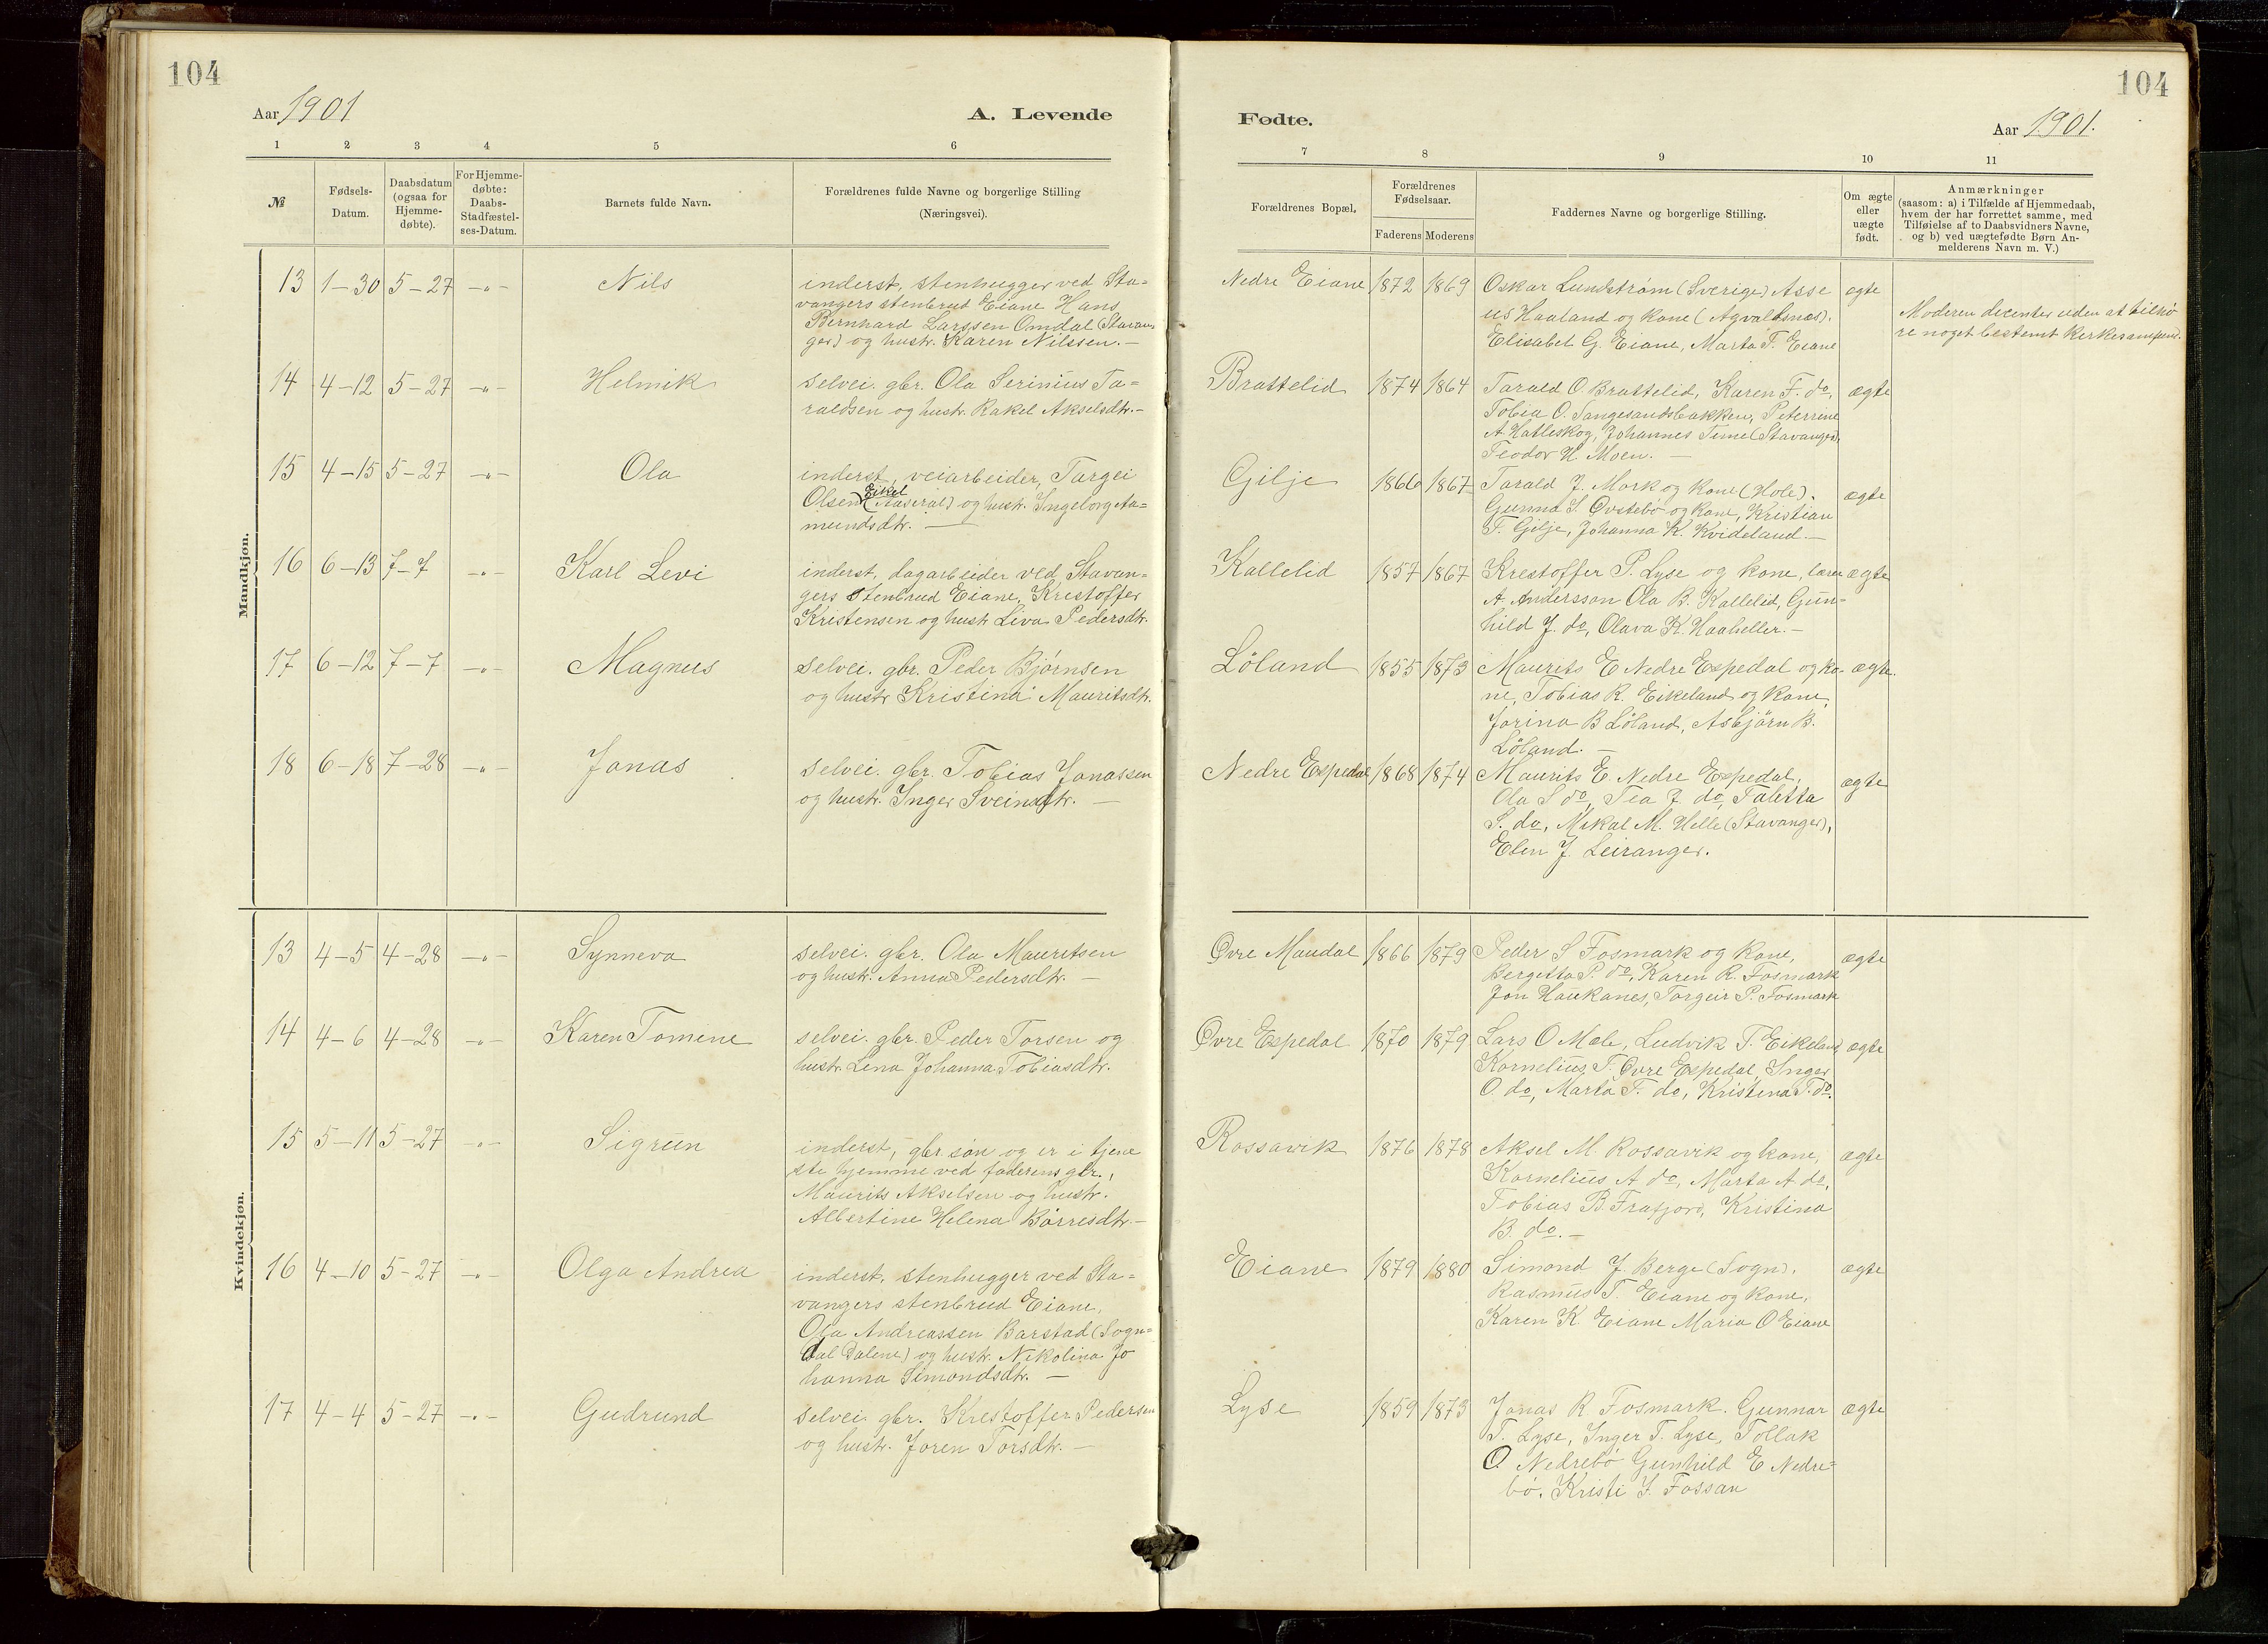 104
104
Aar 1901
A. Levende
Fødte.
Aar 1901.
1 2 3 4 5 6
7 8 9 10 11
№
Fødsels-
Datum.
Daabsdatum
(ogsaa for
Hjemme-
døbte).
For Hjemme-
døbte:
Daabs-
Stadfæstel-
ses-Datum.
Barnets fulde Navn.
Forældrenes fulde Navne og borgerlige Stilling
(Næringsvei).
Forældrenes Bopæl.
Forældrenes
Fødselsaar.
Faderens Moderens
Faddernes Navne og borgerlige Stilling.
Om ægte
eller
uægte
født.
Anmærkninger
(saasom: a) i Tilfælde af Hjemmedaab,
hvem der har forrettet samme, med
Tilføielse af to Daabsvidners Navne,
og b) ved uægtefødte Børn An-
melderens Navn m. V.)
Mandkjøn.
13 1-30 5-27 -"- Nils
inderst, stenhugger ved Sta-
vangers stenbrud Eiane Hans
Bernhard Larssen Omdal (Stavan-
ger) og hustr. Karen Nilssen.-
Nedre Eiane 1872 1869
Oskar Lundstrøm (Sverige) Asse
us Haaland og kone (Agvaldsnæs).
Elisabet G. Eiane, Marta T. Eiane
ægte
Moderen decenter uden at tilhø
re noget bestemt kirkesamfund.
14 4-12 5-27 -"- Helmik
selvei. gbr. Ola Serinius Ta-
raldsen og hustr. Rakel Akselsdtr.-
Brattelid 1874 1864
Tarald O Brattelid, Karen F. do,
Tobia O. Sangesandsbakken, Peterrine
A. Hatleskog, Johannes Time (Stavanger),
Teodor H. Moen. -
ægte
15 4-15 5-27 -"- Ola
inderst, veiarbeider, Targei
Olsen Eikel (Aaseral) og hustr. Ingeborg Aa-
mundsdtr. -
Gilje 1866 1867
Tarald J. Mork og kone (Hole).
Gunna S. Øvstebø og kone, Kristian
F. Gilje, Johanna K. Kvideland -
ægte
16 6-13 7-7 -"- Karl Levi
inderst, dagarbeider ved Stavan-
gers stenbrud Eiane, Kristoffer
Kristensen og hustr Liva Pedersdtr.
Kallelid 1857 1867
Krestoffer P. Lyse og kone, lærer
A. Andersson Ola B. Kallelid, Gun-
hild J. do, Olava K. Haaheller.-
ægte
17 6-12 7-7 -"- Magnus
selvei. gbr. Peder Bjørnsen
og hustr Kristina Mauritsdtr.
Löland 1855 1873
Maurits E Nedre Espedal og ko-
ne, Tobias R. Eikeland og kone,
Jorina B Löland, Asbjörn B.
Löland. -
ægte.
18 6-18 7-28 -"- Jonas
selvei. gbr. Tobias Jonassen
og hustr. Inger Sveinsdtr. -
Nedre Espedal 1868 1874
Maurits E. Nedre Espedal,
Ola S do, Tea J. do, Taletta
S. do, Mikal M. Helle (Stavanger),
Elen J. Leiranger.
ægte
Kvindekjøn.
13 4-5 4-28 -"- Synneva
selvei. gbr. Ola Mauritsen
og hustr. Anna Pedersdtr. -
Øvre Maudal 1866 1879
Peder S Fosmark og kone,
Bergitta P. do, Karen R. Fosmark
Jon Haukanes, Torgeir P. Fosmark
ægte
14 4-6 4-28 -"- Karen Tomine
selvei. gbr. Peder Torsen og
hustr. Lena Johanna Tobiasdtr.
Øvre Espedal 1870 1879
Lars O Mæle, Ludvik T. Eikeland
Kornelius T. Øvre Espedal, Inger
O. do, Marta T. do, Kristina T. do.
ægte
15 5-11 5-27 -"- Sigrun
inderst, gbr. søn og er i tjene
ste hjemme ved faderens gbr.,
Maurits Akselsen og hustr.
Albertine Helena Börresdtr.-
Rossavik 1876 1878
Aksel M. Rossavik og kone,
Kornelius A do, Marta A do,
Tobias B. Frafjord, Kristina
B. do. -
ægte
16 4-10 5-27 -"- Olga Andrea
inderst, stenhugger ved Sta-
vangers stenbrud Eiane,
Ola Andreassen Barstad (Sogn-
dal Dalene) og hustr. Nikolina Jo
hanna Simondsdtr. -
Eiane 1879 1880
Simond J. Berge (Sogn).
Rasmus T. Eiane og kone,
Karen K. Eiane Maria O Eiane
ægte
17 4-4 5-27 -"- Gudrund
selvei gbr. Krestoffer Pedersen
og hustr. Joren Torsdtr. -
Lyse 1859 1873
Jonas R Fosmark. Gunnar
T. Lyse, Inger T. Lyse, Tollak
O. Nedrebö Gunhild E Nedre-
bö. Kristi J. Fossan
ægte